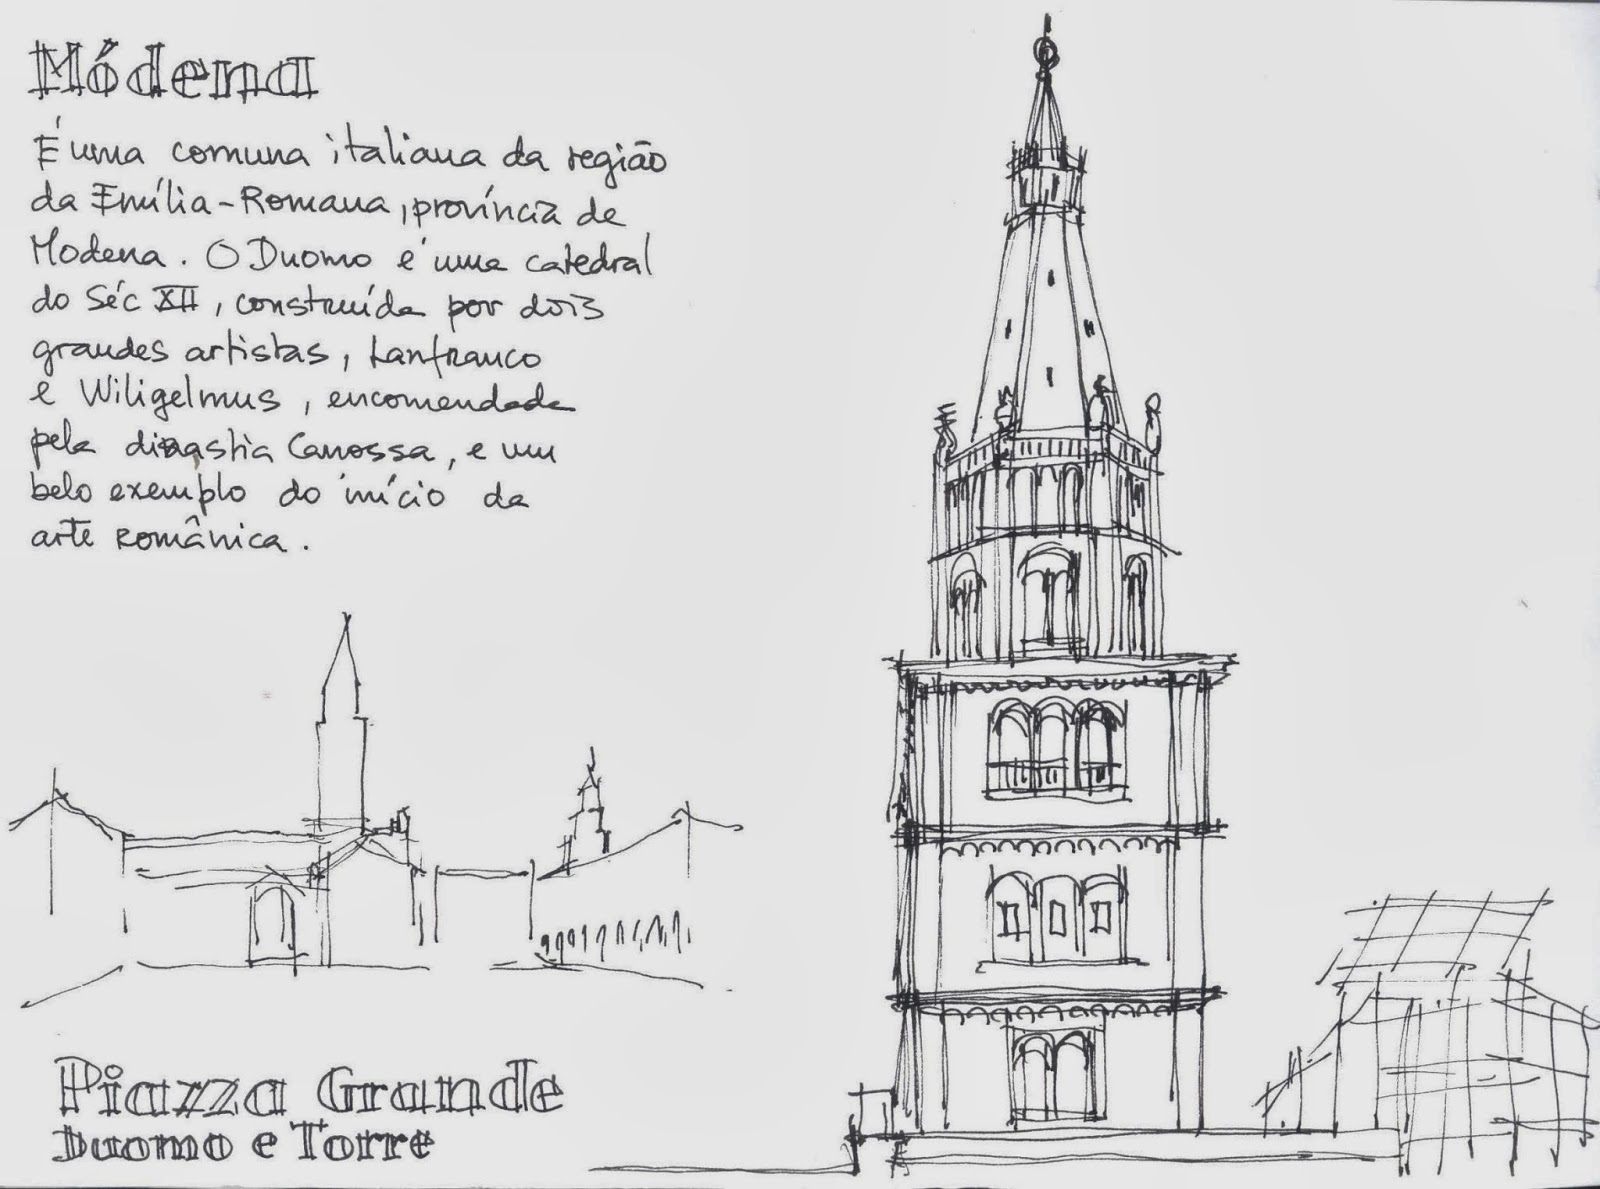 Módena
É uma comuna italiana da região
da Emília-Romana, província de
Modena. O Duomo é uma catedral
do Séc XII, construída por dois
grandes artistas, Lanfranco
e Wiligelmus, encomendada
pela dinastia Canossa, e um
belo exemplo do início da
arte românica.
Piazza Grande
Duomo e Torre